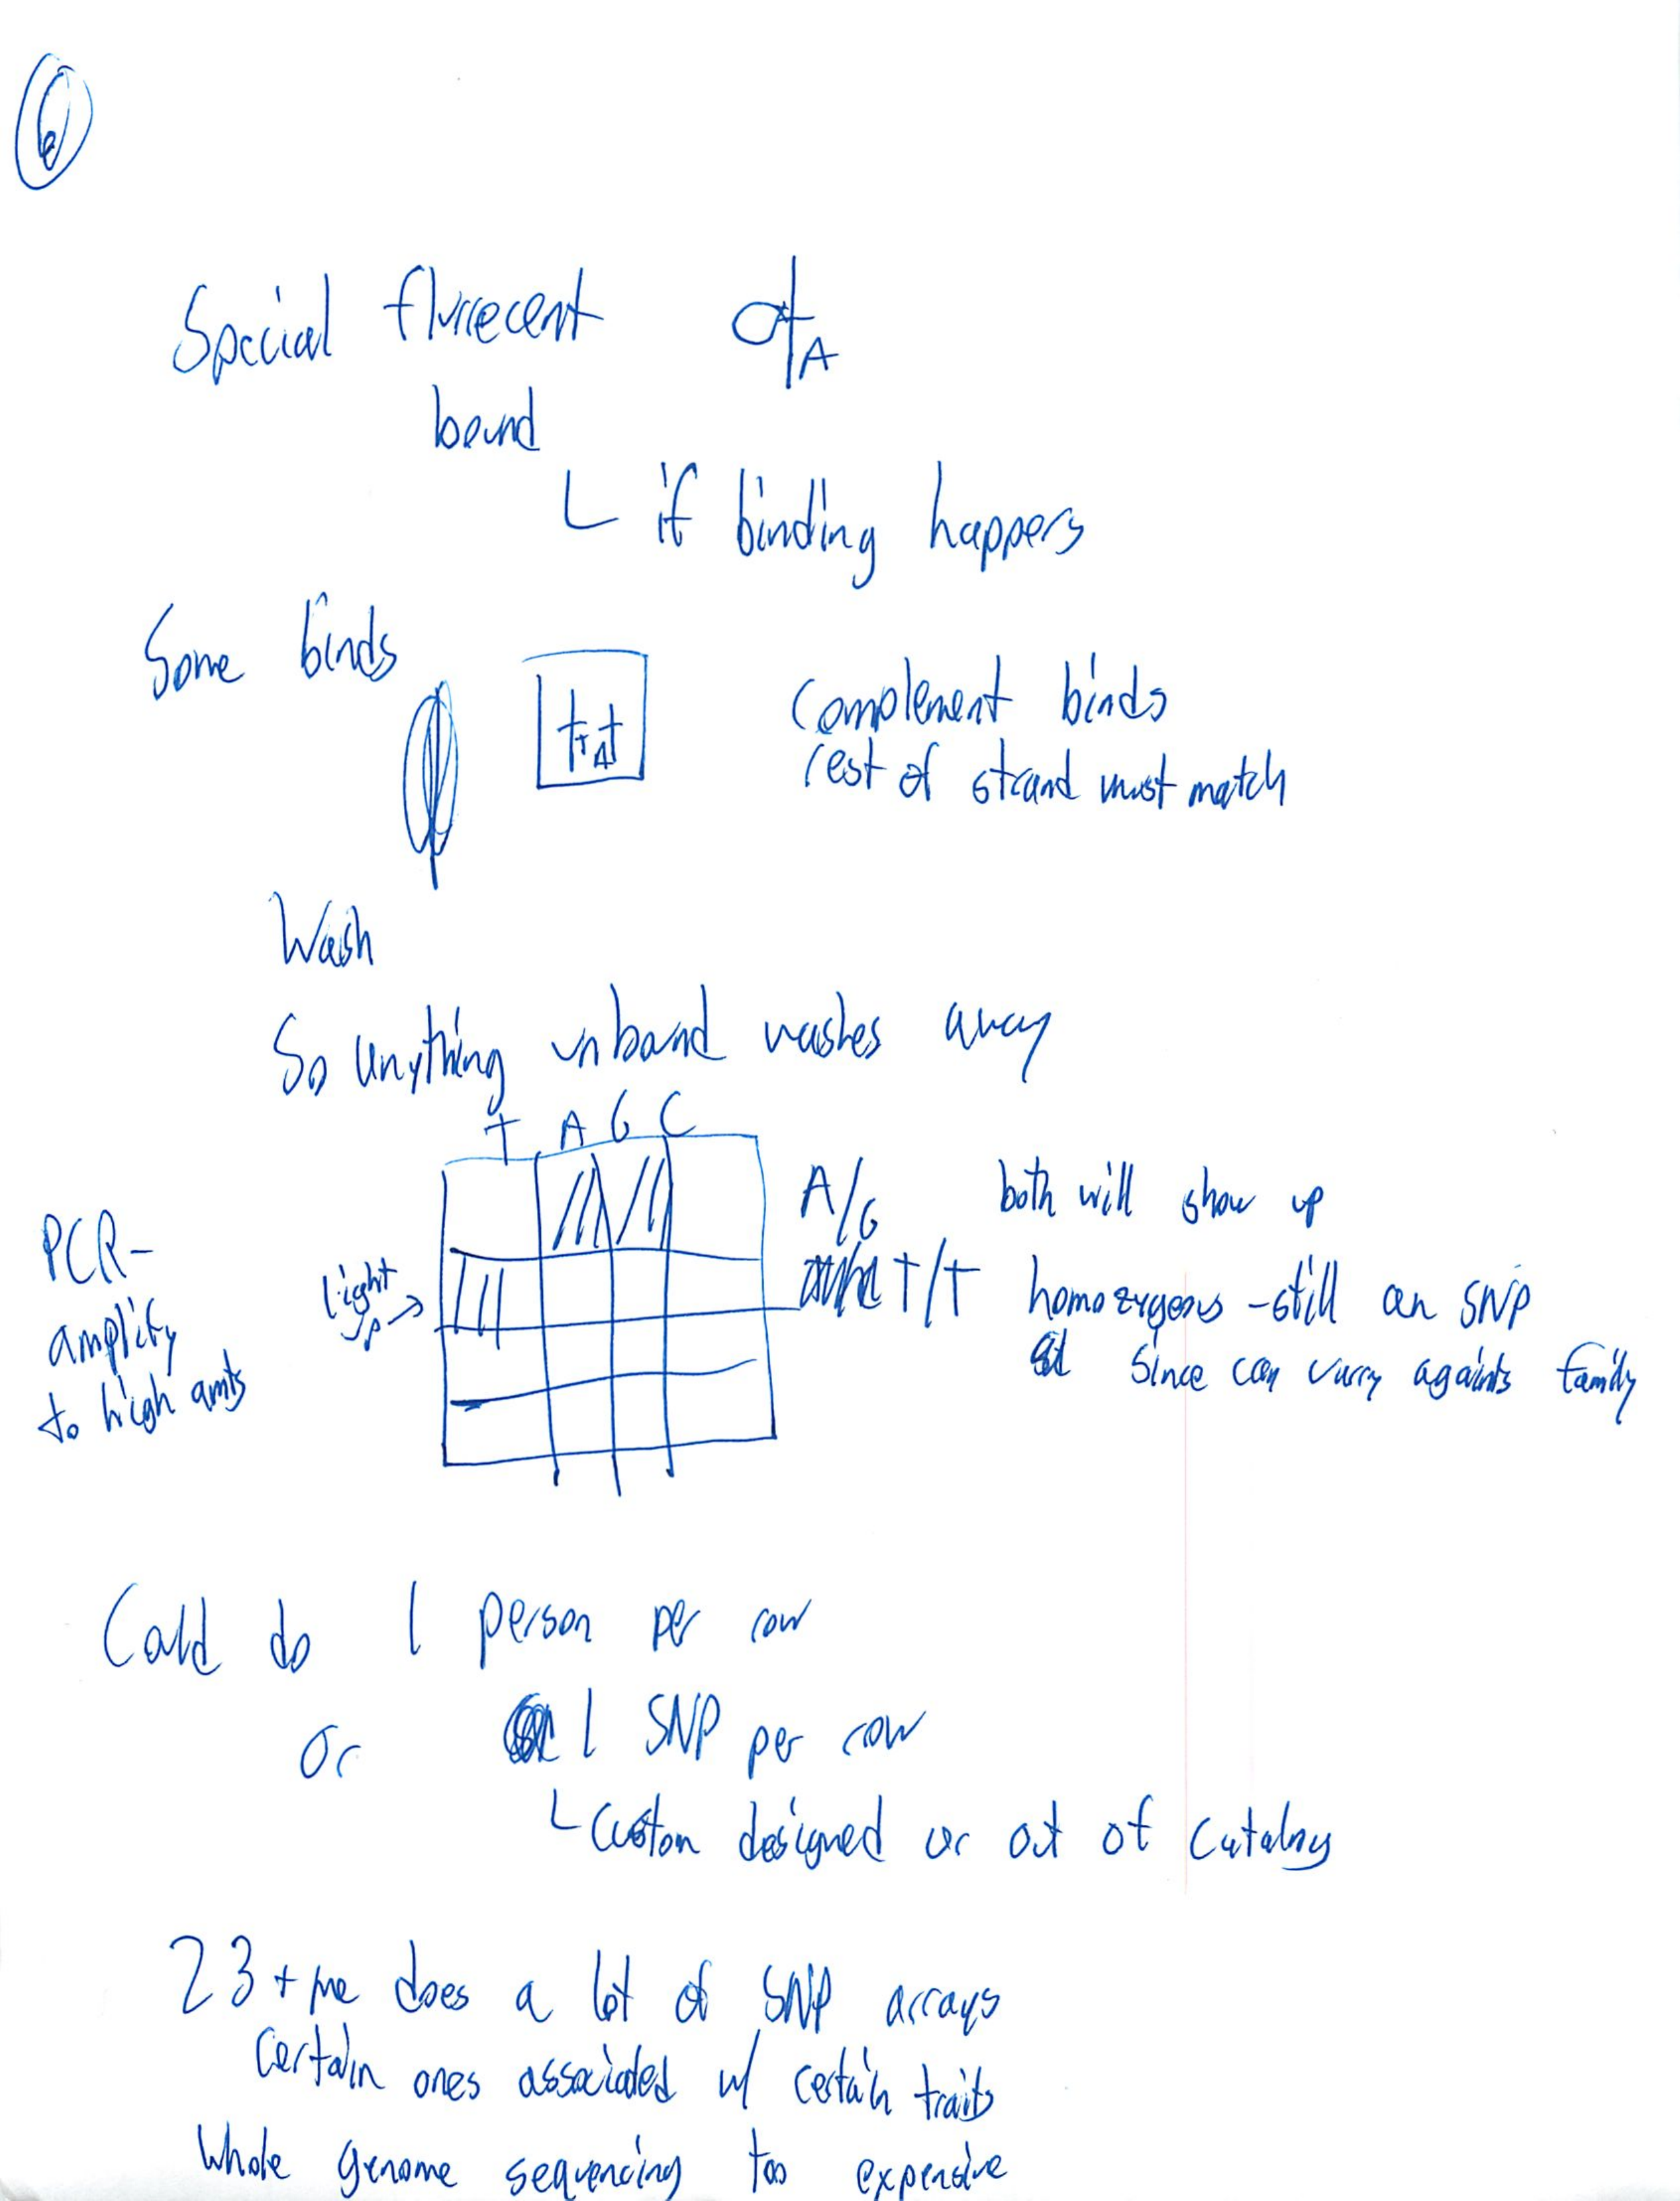 6
Special flurrecent A
bound
if binding happens
Some binds
T A
Complement binds
rest of strand must match
Wash
So anything unbound washes away
T A G C
A/G both will show up
PCR-
amplify
to high amts
light
up →
T/T homozygous - still an SNP
since can varry againts family
Could do 1 person per row
Or 1 SNP per row
Custom designed or out of catalog
23+me does a lot of SNP arrays
Certain ones associated w/ certain traits
Whole genome sequencing too expensive